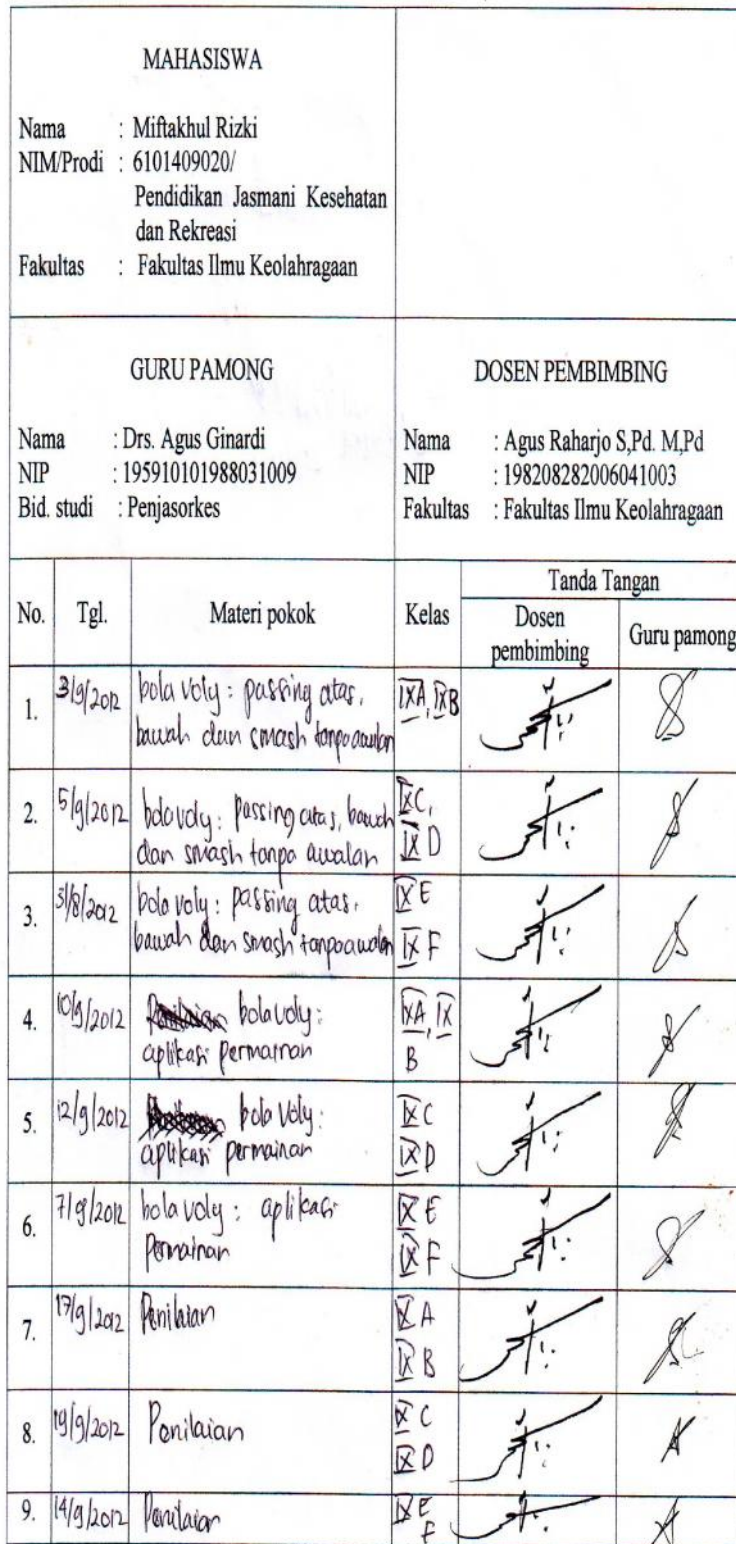 MAHASISWA
Nama : Miftakhul Rizki
NIM/Prodi : 6101409020/
Pendidikan Jasmani Kesehatan
dan Rekreasi
Fakultas : Fakultas Ilmu Keolahragaan
GURU PAMONG
Nama : Drs. Agus Ginardi
NIP : 195910101988031009
Bid. studi : Penjasorkes
DOSEN PEMBIMBING
Nama : Agus Raharjo S,Pd. M,Pd
NIP : 198208282006041003
Fakultas : Fakultas Ilmu Keolahragaan
No. Tgl. Materi pokok Kelas Tanda Tangan
Dosen pembimbing Guru pamong
1. 3/9/2012 bola voly : passing atas, IXA, IXB
bawah dan smash tanpa awalan
2. 5/9/2012 bola voly : passing atas, bawah IXC,
dan smash tanpa awalan IX D
3. 31/8/2012 bola voly : passing atas, IX E
bawah dan smash tanpa awalan IX F
4. 10/9/2012 bola voly : IXA, IX
aplikasi permainan B
5. 12/9/2012 bola voly : IX C
aplikasi permainan IX D
6. 7/9/2012 bola voly : aplikasi IX E
Permainan IX F
7. 17/9/2012 Penilaian IX A
IX B
8. 19/9/2012 Penilaian IX C
IX D
9. 14/9/2012 Penilaian IX E
F